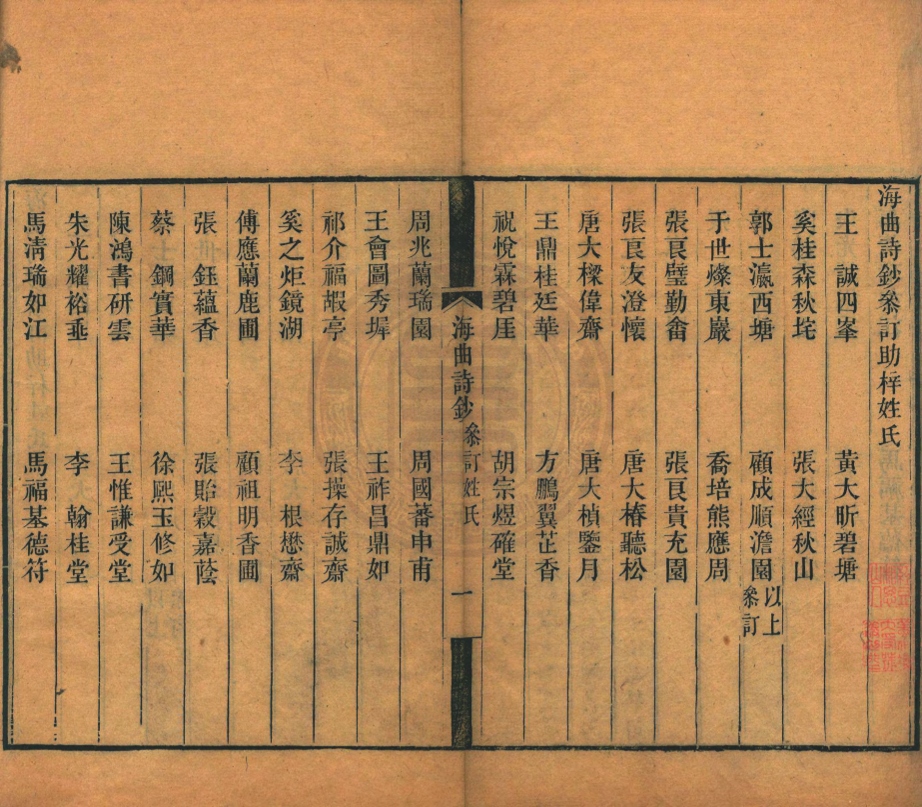 海曲詩鈔叅訂助梓姓氏
王　誠四峯　黃大昕碧塘
奚桂森秋垞　張大經秋山
郭士瀛西塘　顧成順澹園以上叅訂
于世燦東巖　喬培熊應周
張良璧勤畬　張良貴充園
張良友澄懷　唐大椿聽松
唐大樑偉齋　唐大楨鑒月
王鼎桂廷華　方鵬翼芷香
祝悅霖碧厓　胡宗煜確堂
海曲詩鈔　叅訂姓氏　一
周兆蘭瑞園　周國蕃申甫
王會圖秀墀　王祚昌鼎如
祁介福嘏亭　張操存誠齋
奚之炬鏡湖　李　根懋齋
傅應蘭鹿圃　顧祖明香圃
張　鈺蘊香　張貽穀嘉蔭
蔡　鋼實華　徐熙玉修如
陳鴻書研雲　王惟謙受堂
朱光耀裕垂　李　翰桂堂
馬淸瑞如江　馬福基德符